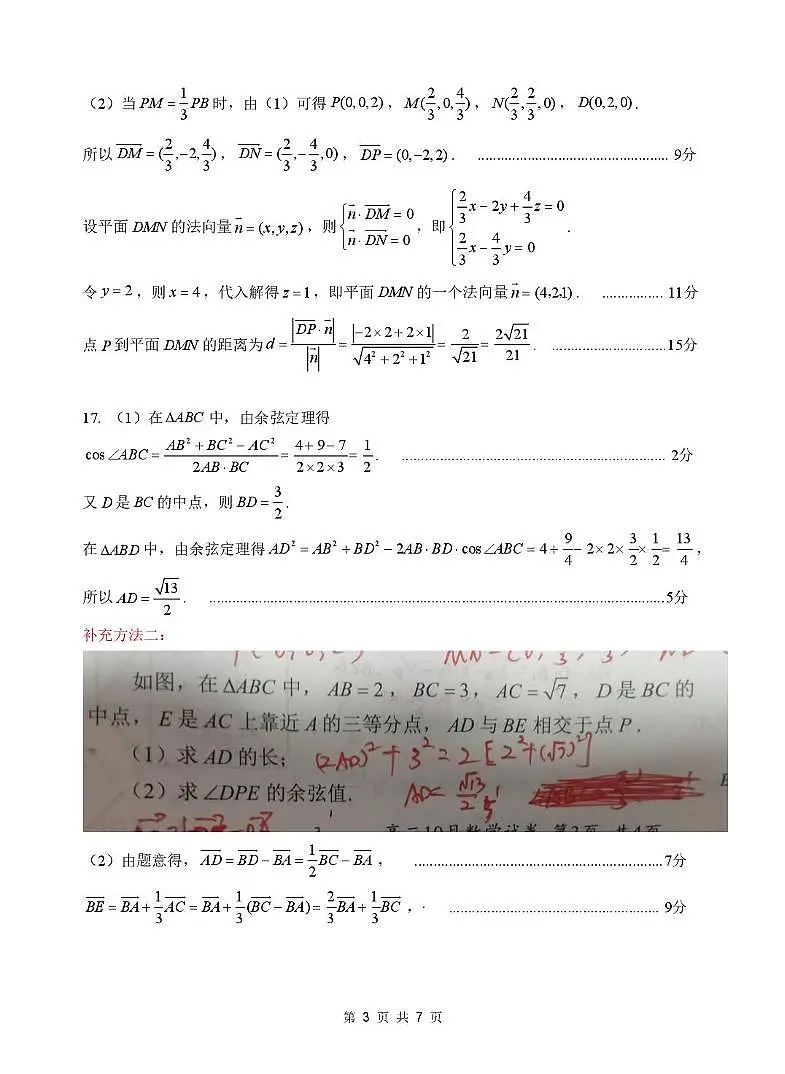 （2）当 PM = 1/3 PB 时，由（1）可得 P(0,0,2)，M(2/3,0,4/3)，N(2/3,2/3,0)，D(0,2,0).
所以 DM = (2/3,-2,4/3)，DN = (2/3,-4/3,0)，DP = (0,-2,2). ........ 9分
设平面 DMN 的法向量 n = (x,y,z)，则 { n·DM = 0, n·DN = 0 ，即 { 2/3 x - 2y + 4/3 z = 0, 2/3 x - 4/3 y = 0 .
令 y = 2，则 x = 4，代入解得 z = 1，即平面 DMN 的一个法向量 n = (4,2,1). ........ 11分
点 P 到平面 DMN 的距离为 d = |DP·n| / |n| = |-2×2+2×1| / √(4²+2²+1²) = 2/√21 = 2√21/21. ........ 15分
17. （1）在 ΔABC 中，由余弦定理得
cos∠ABC = (AB²+BC²-AC²)/(2AB·BC) = (4+9-7)/(2×2×3) = 1/2. ........ 2分
又 D 是 BC 的中点，则 BD = 3/2.
在 ΔABD 中，由余弦定理得 AD² = AB² + BD² - 2AB·BD·cos∠ABC = 4 + 9/4 - 2×2×3/2×1/2 = 13/4，
所以 AD = √13/2. ........ 5分
补充方法二：
如图，在 ΔABC 中，AB=2，BC=3，AC=√7，D 是 BC 的
中点，E 是 AC 上靠近 A 的三等分点，AD 与 BE 相交于点 P.
（1）求 AD 的长； (2AD)² + 3² = 2[2²+(√7)²]
（2）求 ∠DPE 的余弦值. AD = √13/2
高二10月数学试卷 第3页 共4页
（2）由题意得，AD = BD - BA = 1/2 BC - BA， ........ 7分
BE = BA + 1/3 AC = BA + 1/3 (BC - BA) = 2/3 BA + 1/3 BC， ........ 9分
第 3 页 共 7 页